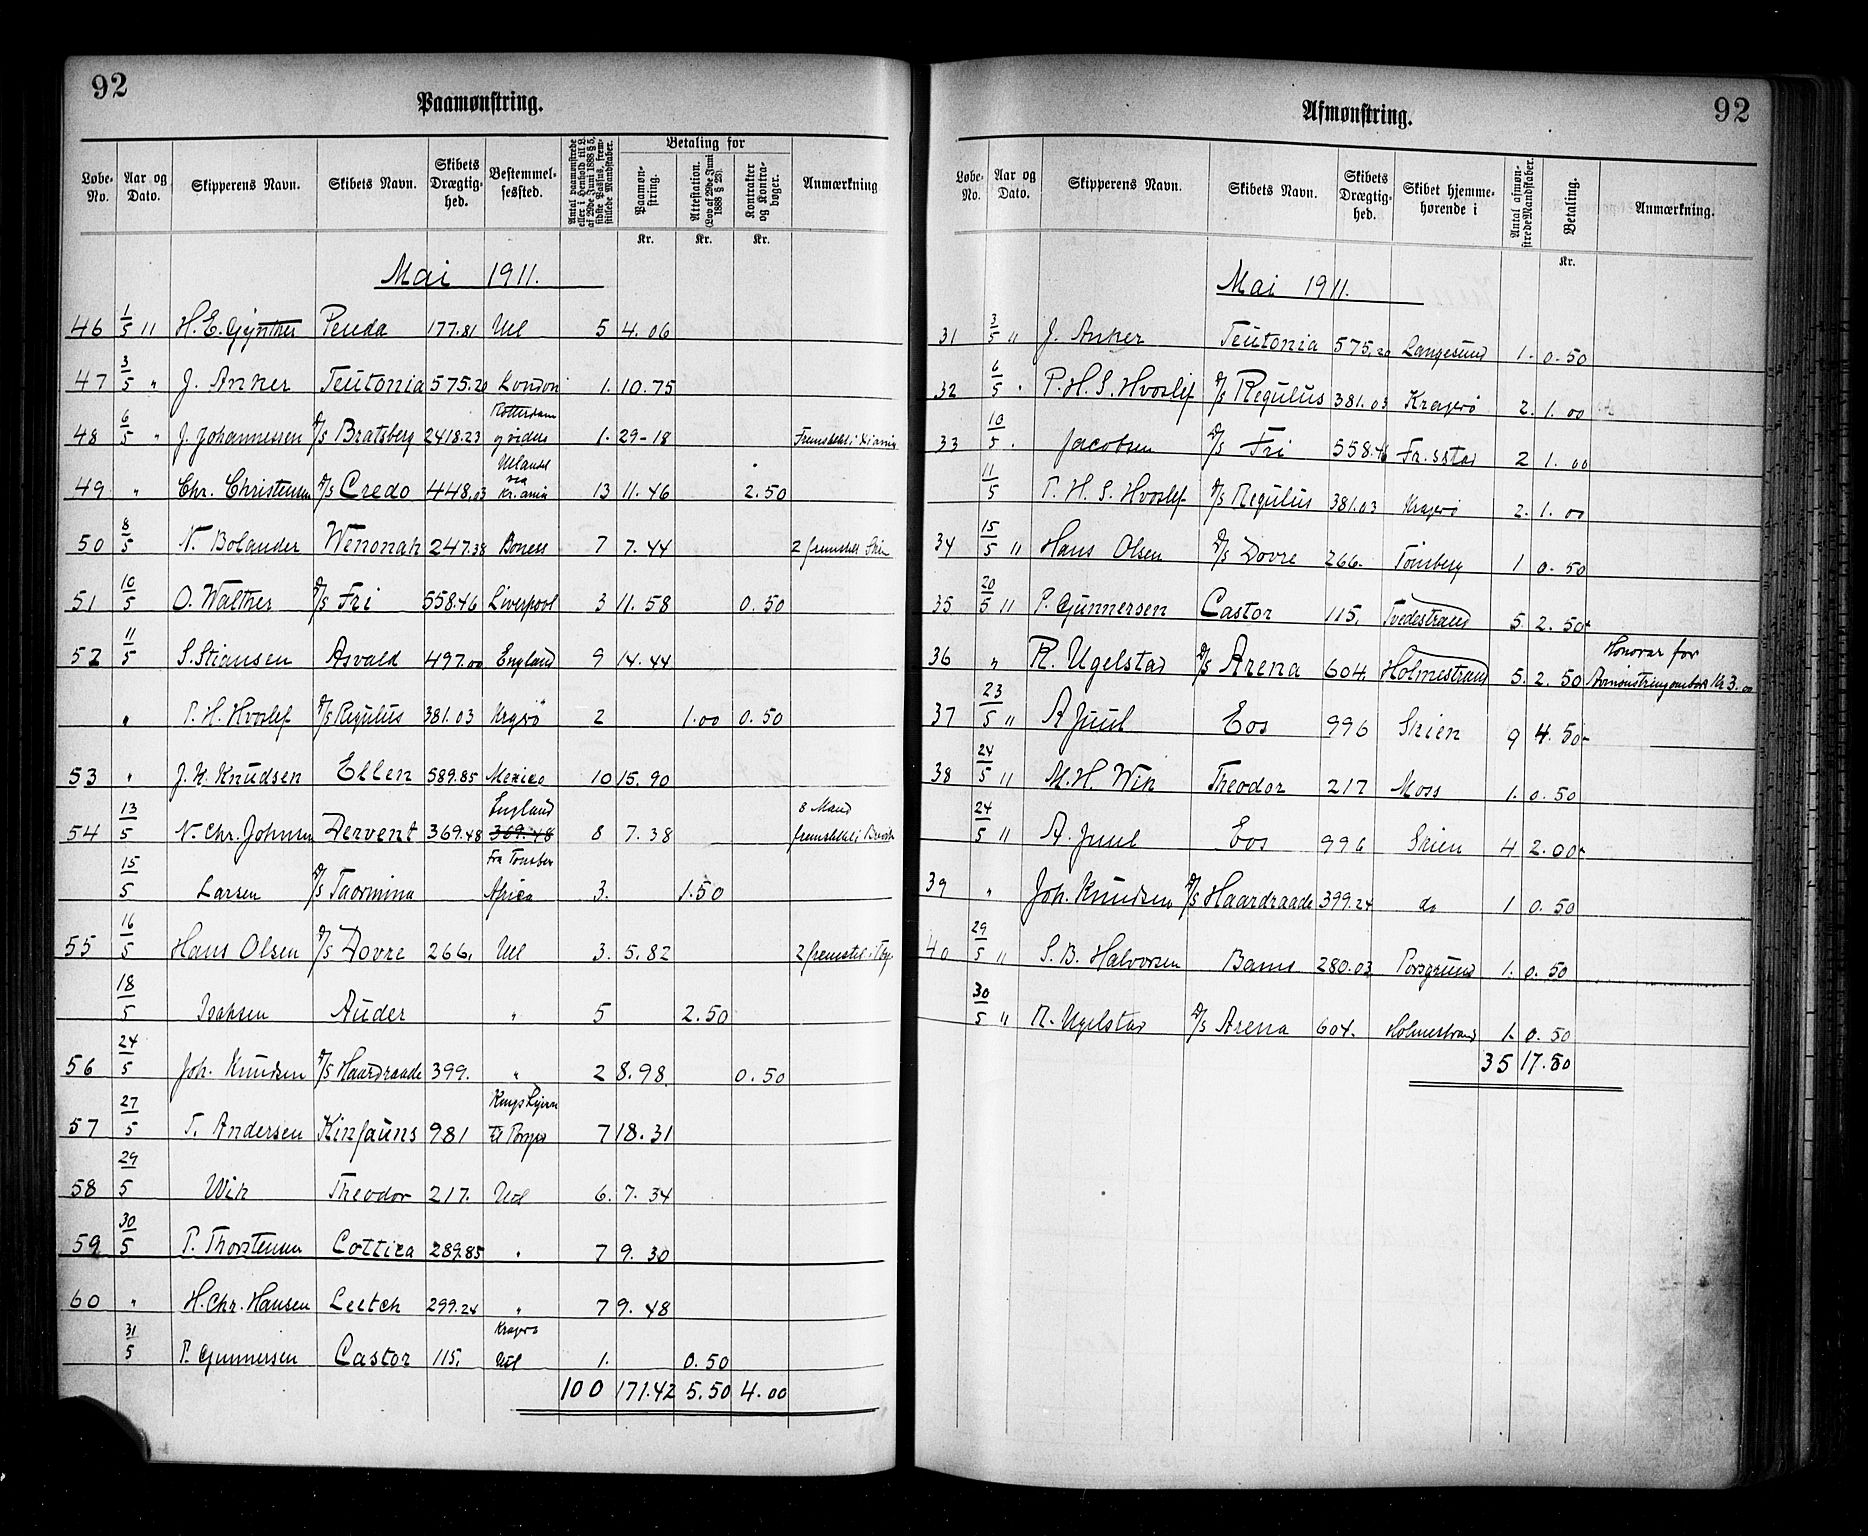 92
Paamønstring.
Løbe-No. Aar og Dato. Skipperens Navn. Skibets Navn. Skibets Drægtig-hed. Bestemmel-sessted. Antal paamønstrede eller i Henhold til L. af 29de Juni 1888 § 5, sidste Passus, frem-stillede Mandskaber. Betaling for Paamøn-string. Attestation. (Lov af 29de Juni 1888 § 23). Kontrakter og Kontra-bøger. Anmærkning
Kr. Kr. Kr.
Mai 1911.
46 1/5 11 H. E. Gyntner Penda 177.81 Utl 5 4.06
47 3/5 " J. Anker Teutonia 575.20 London 1. 10.75
48 6/5 " J. Johannessen D/S Bratsberg 2418.23 Rotterdam g videre 1. 29-18 Fremstillet i Kr.ania
49 " Chr. Christensen D/S Credo 448.03 Utlandet via Kr.ania 13 11.46 2.50
50 8/5 N. Bolander Wenonah 247.38 Boness 7 7.44 2 fremstillet Skien
51 10/5 O. Walther D/S Fri 558.46 Liverpool 3 11.58 0.50
52 11/5 S. Stiansen Asvald 497.00 England 9 14.44
" P. H. Hvoslef D/S Regulus 381.03 Kragerø 2 1.00 0.50
53 " J. K. Knudsen Ellen 589.85 Mexico 10 15.90
54 13/5 N. Chr. Johnsen Dervent 369.48 England 369.48 8 7.38 8 Mand fremstillet i
15/5 Larsen D/S Taormina Fra Tønsberg Africa 3. 1.50
55 16/5 Hans Olsen D/S Dovre 266. Utl 3. 5.82 2 fremstil. i
18/5 Isaksen Auder " 5 2.50
56 24/5 Joh. Knudsen D/S Haardraade 399. " 2 8.98 0.50
57 27/5 T. Andersen Kinfauns 981 til 7 18.31
58 29/5 Wik Theodor 217. Utl 6. 7.34
59 30/5 P. Thorstensen Cottica 289.85 " 7 9.30
60 " H. Chr. Hansen Leetch 299.24 " 7 9.48
31/5 P. Gunnersen Castor 115. Kragerø Utl 1. 0.50
100 171.42 5.50 4.00
92
Afmønstring.
Løbe-No. Aar og Dato. Skipperens Navn. Skibets Navn. Skibets Drægtig-hed. Skibet hjemme-hørende i Antal afmøn-strede Mandskaber. Betaling. Anmærkning.
Kr.
Mai 1911.
31 3/5 " J. Anker Teutonia 575.20 Langesund 1. 0.50
32 6/5 " P. H. S. Hvoslef D/S Regulus 381.03 Kragerø 2. 1.00
33 10/5 " Jacobsen D/S Fri 558.46 Fr.sstad 2 1.00
11/5 P. H. S. Hvoslef D/S Regulus 381.03 Kragerø 2. 1.00
34 15/5 " Hans Olsen D/S Dovre 266. Tønsberg 1 0.50
35 20/5 " P. Gunnersen Castor 115. Tvedestrand 5 2.50
36 " R. Ugelstad D/S Arena 604. Holmestrand 5. 2.50 Honorar for Kr 3.00
37 23/5 " A Juul Eos 996 Skien 9 4.50
38 24/5 " M. H. Wik Theodor 217 Moss 1. 0.50
24/5 " A. Juul Eos 996 Skien 4 2.00
39 " Joh. Knudsen D/S Haardraade 399.24 do 1 0.50
40 29/5 " S. B. Halvorsen Bams 280.03 Porsgrund 1. 0.50
30/5 " R. Ugelstad D/S Arena 604. Holmestrand 1. 0.50
35 17.50